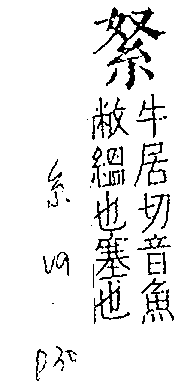 牛居切音魚
敝緼也塞也
糸
p30